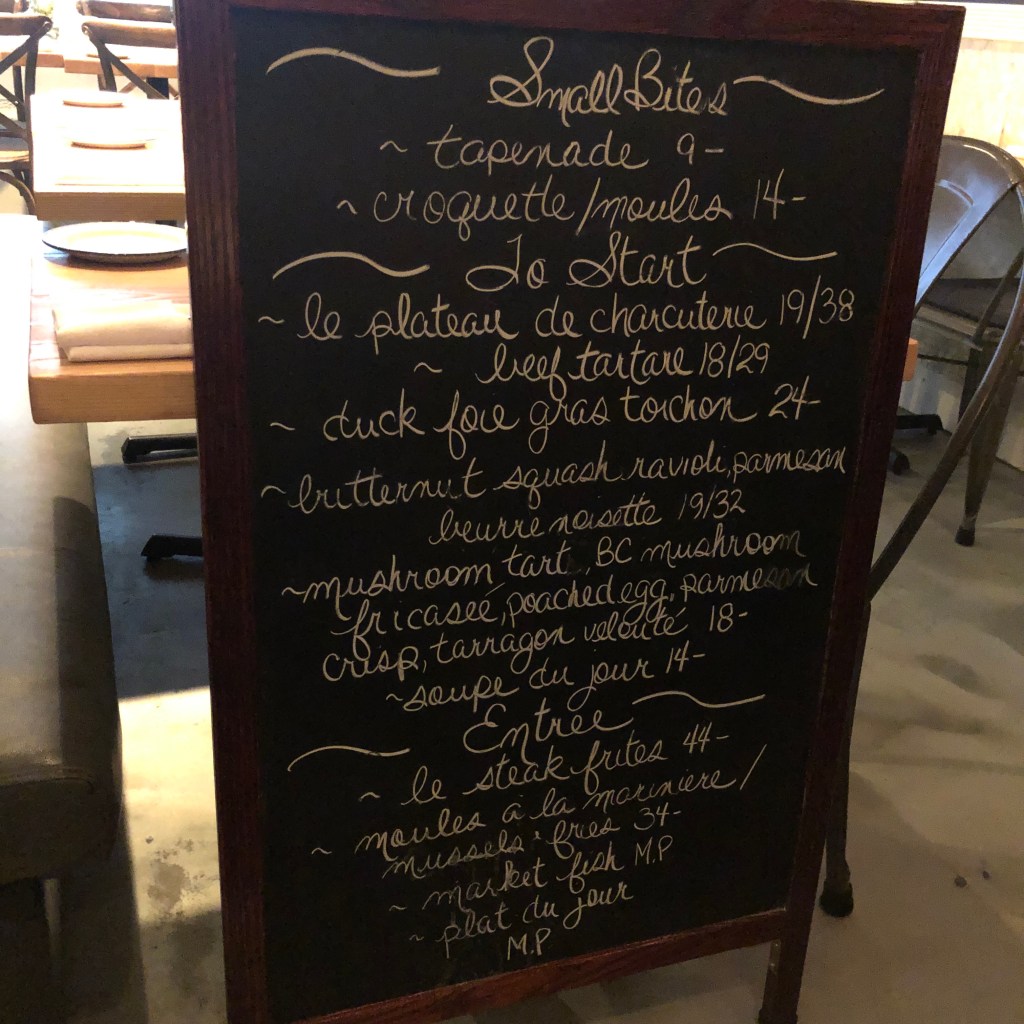 Small Bites
~ tapenade 9-
~ croquette/moules 14-
To Start
~ le plateau de charcuterie 19/38
~ beef tartare 18/29
~ duck foie gras torchon 24-
~ butternut squash ravioli, parmesan
beurre noisette 19/32
~ mushroom tart, BC mushroom
fricaseé, poached egg, parmesan
crisp, tarragon velouté 18-
~ soupe du jour 14-
Entree
~ le steak frites 44-
~ moules à la mariniere /
mussels + fries 34-
~ market fish M.P
~ plat du jour
M.P